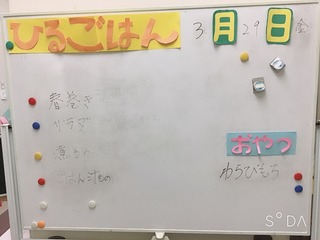 ひるごはん
3月29日金
春巻き
サラダ
煮
ごはん 汁もの
おやつ
わらびもち
SODA